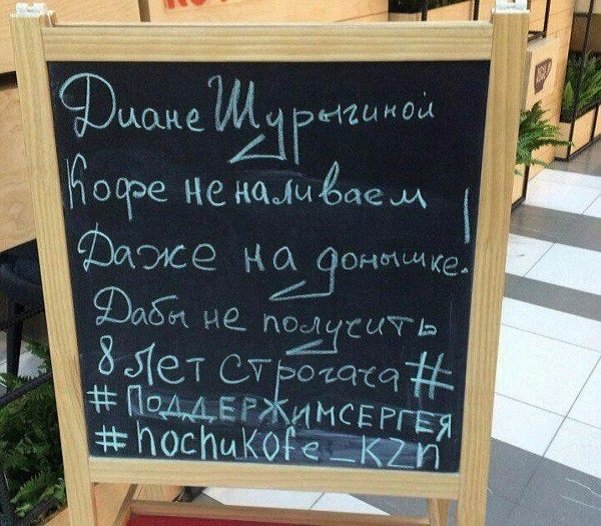 Диане Шурыгиной
Кофе не наливаем
Даже на донышке!
Дабы не получить
8 лет строгача #
#ПОДДЕРЖИМСЕРГЕЯ
#hochuKofe_KZn